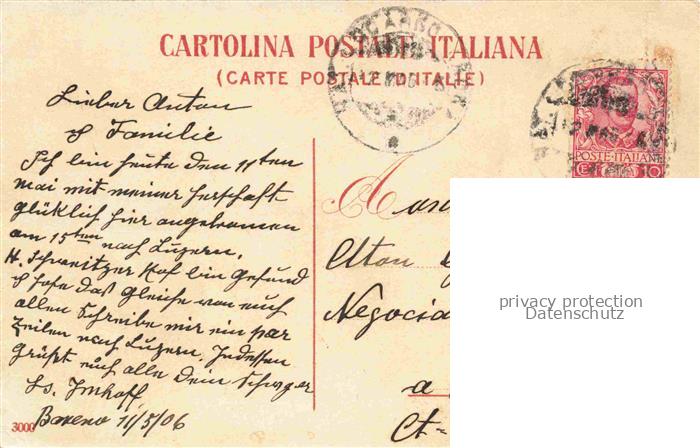 CARTOLINA POSTALE ITALIANA
(CARTE POSTALE D'ITALIE)
Lieber Anton
& Familie
Ich bin heute den 11ten
mai mit meiner herschaft
glücklich hier angekommen
am 15ten nach Luzern.
H. Schweitzer Hof bin Gesund
& hofe daß gleiche von euch
allen Schreibe mir ein par
Zeilen nach Luzern. Indessen
Grüßt euch alle dein Schwager
Ls. Imhoff
Baveno 11/5/06
3000
POSTE ITALIANE
10
A
Negocia
a
Ct-
privacy protection
Datenschutz